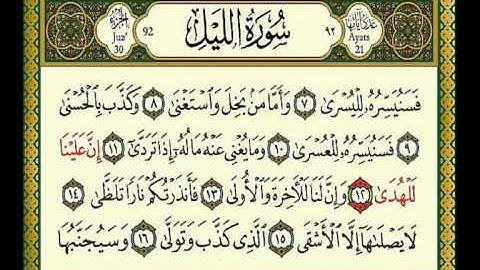 الجزء Juz' 30
92
سُورَةُ اللَّيْلِ
٩٢
عدد آياتها Ayats 21
فَسَنُيَسِّرُهُۥ لِلْيُسْرَىٰ ﴿٧﴾ وَأَمَّا مَنۢ بَخِلَ وَٱسْتَغْنَىٰ ﴿٨﴾ وَكَذَّبَ بِٱلْحُسْنَىٰ
﴿٩﴾ فَسَنُيَسِّرُهُۥ لِلْعُسْرَىٰ ﴿١٠﴾ وَمَا يُغْنِى عَنْهُ مَالُهُۥٓ إِذَا تَرَدَّىٰٓ ﴿١١﴾ إِنَّ عَلَيْنَا
لَلْهُدَىٰ ﴿١٢﴾ وَإِنَّ لَنَا لَلْءَاخِرَةَ وَٱلْأُولَىٰ ﴿١٣﴾ فَأَنذَرْتُكُمْ نَارًا تَلَظَّىٰ ﴿١٤﴾
لَا يَصْلَىٰهَآ إِلَّا ٱلْأَشْقَى ﴿١٥﴾ ٱلَّذِى كَذَّبَ وَتَوَلَّىٰ ﴿١٦﴾ وَسَيُجَنَّبُهَا